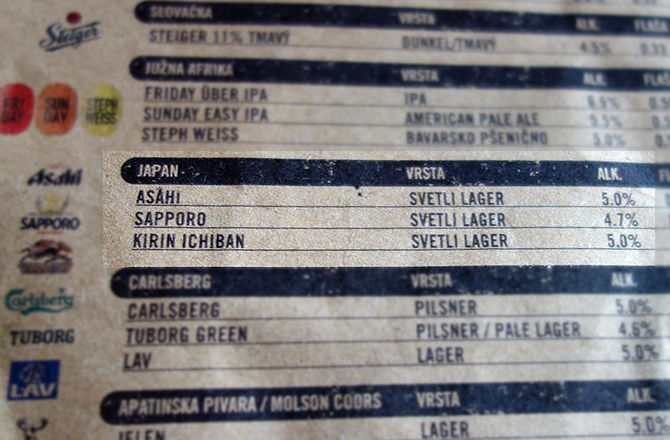 Steiger
SLOVAČKA VRSTA ALK.
STEIGER 11% TMAVÝ DUNKEL/TMAVÝ 4.5%
JUŽNA AFRIKA VRSTA ALK.
FRIDAY ÜBER IPA IPA
SUNDAY EASY IPA AMERICAN PALE ALE 5.5%
STEPH WEISS BAVARSKO PŠENIČNO 5.0%
SUN
DAY
STEPH
WEISS
JAPAN VRSTA ALK.
ASAHI SVETLI LAGER 5.0%
SAPPORO SVETLI LAGER 4.7%
KIRIN ICHIBAN SVETLI LAGER 5.0%
Asahi
SAPPORO
CARLSBERG VRSTA ALK.
CARLSBERG PILSNER 5.0%
TUBORG GREEN PILSNER / PALE LAGER 4.6%
LAV LAGER 5.0%
Carlsberg
TUBORG
LAV
APATINSKA PIVARA / MOLSON COORS VRSTA ALK.
JELEN LAGER 5.0%